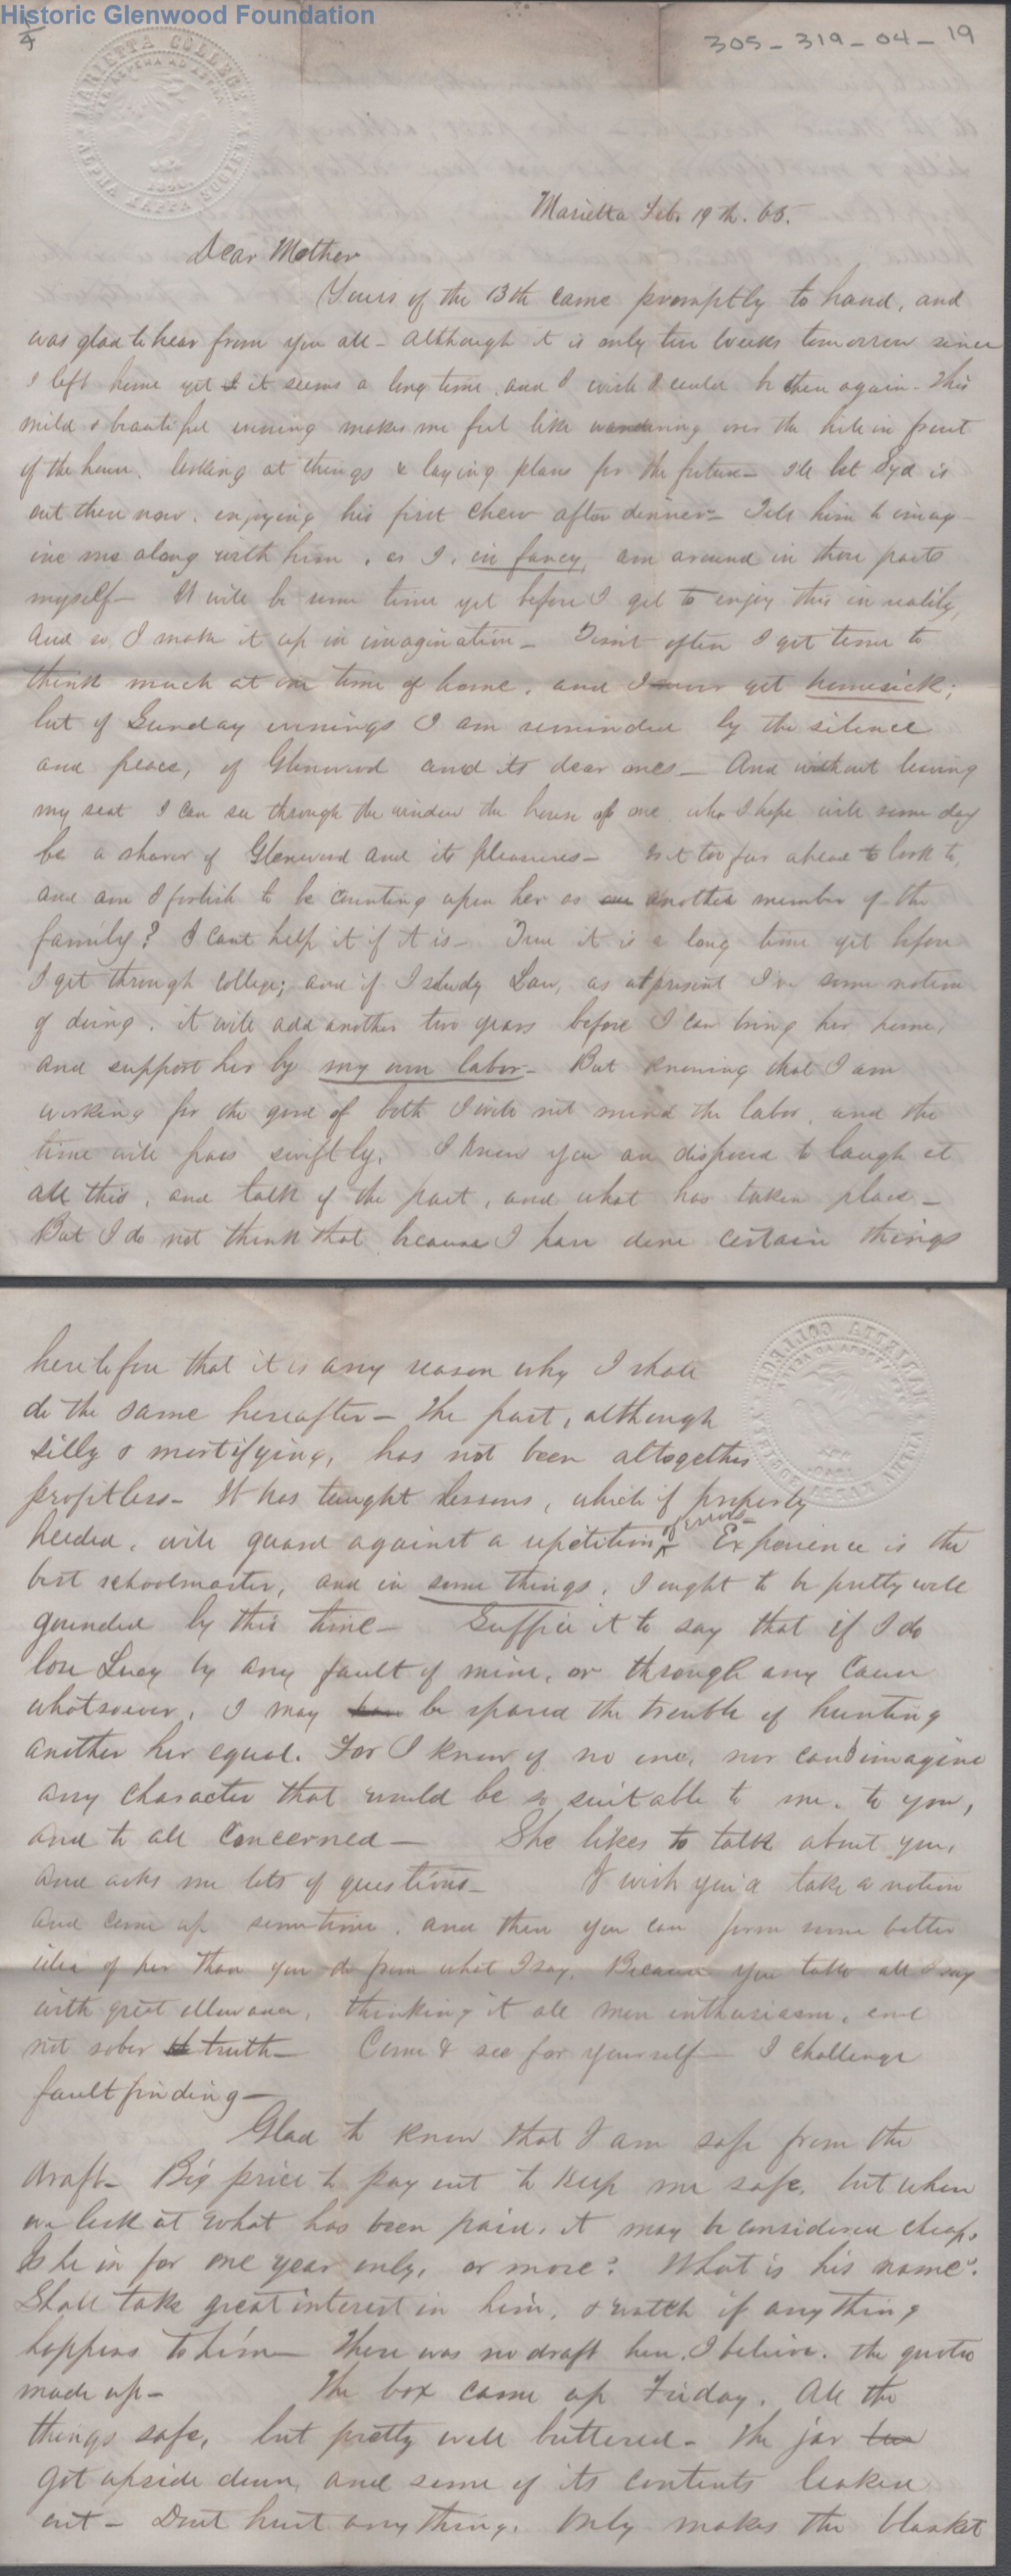 Historic Glenwood Foundation
1/4
305-319-04-19
MARIETTA COLLEGE
ALPHA KAPPA SOCIETY
Marietta Feb. 19th. 65.
Dear Mother
Yours of the 13th came promptly to hand, and
was glad to hear from you all - although it is only two weeks tomorrow since
I left home yet it seems a long time, and I wish I could be there again - This
mild & beautiful evening makes me feel like wandering over the hill in front
of the house, looking at things & laying plans for the future - I'll bet Syd is
out there now, enjoying his first chew after dinner - Tell him to imag-
ine me along with him, as I, in fancy, am around in those parts
myself - It will be some time yet before I get to enjoy this in reality,
and so I make it up in imagination - Tisn't often I get time to
think much at one time of home, and I never get homesick;
but of Sunday evenings I am reminded by the silence
and peace, of Glenwood and its dear ones - And without leaving
my seat I can see through the window the house of one, who I hope will some day
be a sharer of Glenwood and its pleasures - Is it too far ahead to look to,
and am I foolish to be counting upon her as another member of the
family? I cant help it if it is - True it is a long time yet before
I get through college; and if I study Law, as at present I've some notion
of doing, it will add another two years before I can bring her home,
and support her by my own labor - But knowing that I am
working for the good of both I will not mind the labor, and the
time will pass swiftly. I know you are disposed to laugh at
all this, and talk of the past, and what has taken place -
But I do not think that because I have done certain things
heretofore that it is any reason why I shall
do the same hereafter - The past, although
silly & mortifying, has not been altogether
profitless - It has taught lessons, which if properly
heeded, will guard against a repetition of errors - Experience is the
best schoolmaster, and in some things, I ought to be pretty well
grounded by this time - Suffice it to say that if I do
lose Lucy by any fault of mine, or through any cause
whatsoever, I may be spared the trouble of hunting
another her equal. For I know of no one, nor can I imagine
any character that would be so suitable to me, to you,
and to all concerned - She likes to talk about you,
and asks me lots of questions - I wish you'd take a notion
and come up sometime, and then you can form some better
idea of her than you do from what I say, Because you take all I say
with great allowance, thinking it all mere enthusiasm, and
not sober truth - Come & see for yourself - I challenge
fault finding -
Glad to know that I am safe from the
draft - Big price to pay out to keep me safe, but when
we look at what has been paid, it may be considered cheap.
Is he in for one year only, or more? What is his name?
Shall take great interest in him, & watch if anything
happens to him - There was no draft here, I believe, the quota
made up - The box came up Friday. All the
things safe, but pretty well buttered - The jar
got upside down, and some of its contents leaked
out - Dont hurt anything, Only makes the blanket